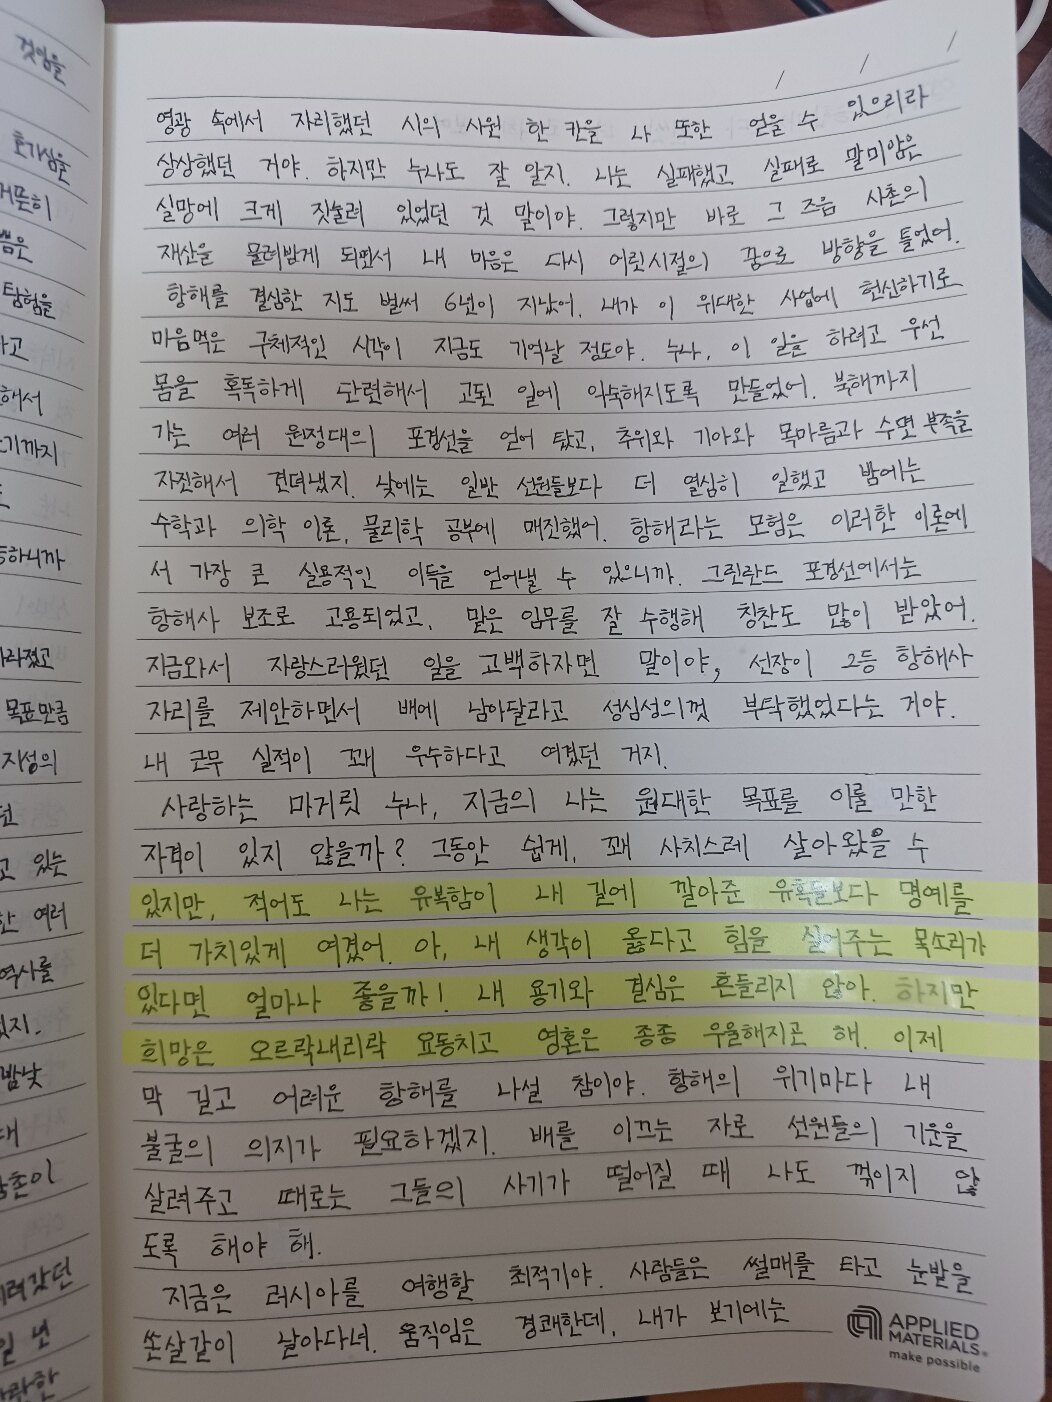 영광 속에서 자리했던 시의 사원 한 칸을 나 또한 얻을 수 있으리라
상상했던 거야. 하지만 누나도 잘 알지. 나는 실패했고 실패로 말미암은
실망에 크게 짓눌려 있었던 것 말이야. 그렇지만 바로 그 즈음 사촌의
재산을 물려받게 되면서 내 마음은 다시 어릿시절의 꿈으로 방향을 틀었어.
항해를 결심한 지도 벌써 6년이 지났어. 내가 이 위대한 사업에 헌신하기로
마음먹은 구체적인 시각이 지금도 기억날 정도야. 누나, 이 일을 하려고 우선
몸을 혹독하게 단련해서 고된 일에 익숙해지도록 만들었어. 북해까지
가는 여러 원정대의 포경선을 얻어 탔고, 추위와 기아와 목마름과 수면 부족을
자진해서 견뎌냈지. 낮에는 일반 선원들보다 더 열심히 일했고 밤에는
수학과 의학 이론, 물리학 공부에 매진했어. 항해라는 모험은 이러한 이론에
서 가장 큰 실용적인 이득을 얻어낼 수 있으니까. 그린란드 포경선에서는
항해사 보조로 고용되었고, 맡은 임무를 잘 수행해 칭찬도 많이 받았어.
지금와서 자랑스러웠던 일을 고백하자면 말이야, 선장이 2등 항해사
자리를 제안하면서 배에 남아달라고 성심성의껏 부탁했었다는 거야.
내 근무 실적이 꽤 우수하다고 여겼던 거지.
사랑하는 마거릿 누나, 지금의 나는 원대한 목표를 이룰 만한
자격이 있지 않을까? 그동안 쉽게, 꽤 사치스레 살아왔을 수
있지만, 적어도 나는 유복함이 내 길에 깔아준 유혹들보다 명예를
더 가치있게 여겼어. 아, 내 생각이 옳다고 힘을 실어주는 목소리가
있다면 얼마나 좋을까! 내 용기와 결심은 흔들리지 않아. 하지만
희망은 오르락내리락 요동치고 영혼은 종종 우울해지곤 해. 이제
막 길고 어려운 항해를 나설 참이야. 항해의 위기마다 내
불굴의 의지가 필요하겠지. 배를 이끄는 자로 선원들의 기운을
살려주고 때로는 그들의 사기가 떨어질 때 나도 꺾이지 않
도록 해야 해.
지금은 러시아를 여행할 최적기야. 사람들은 썰매를 타고 눈밭을
쏜살같이 날아다녀. 움직임은 경쾌한데, 내가 보기에는
APPLIED
MATERIALS®
make possible
것임을
호기심을
탐험을
해서
기까지
하니까
라졌고
목표만큼
지성의
고 있는
한 여러
역사를
있지.
밤낮